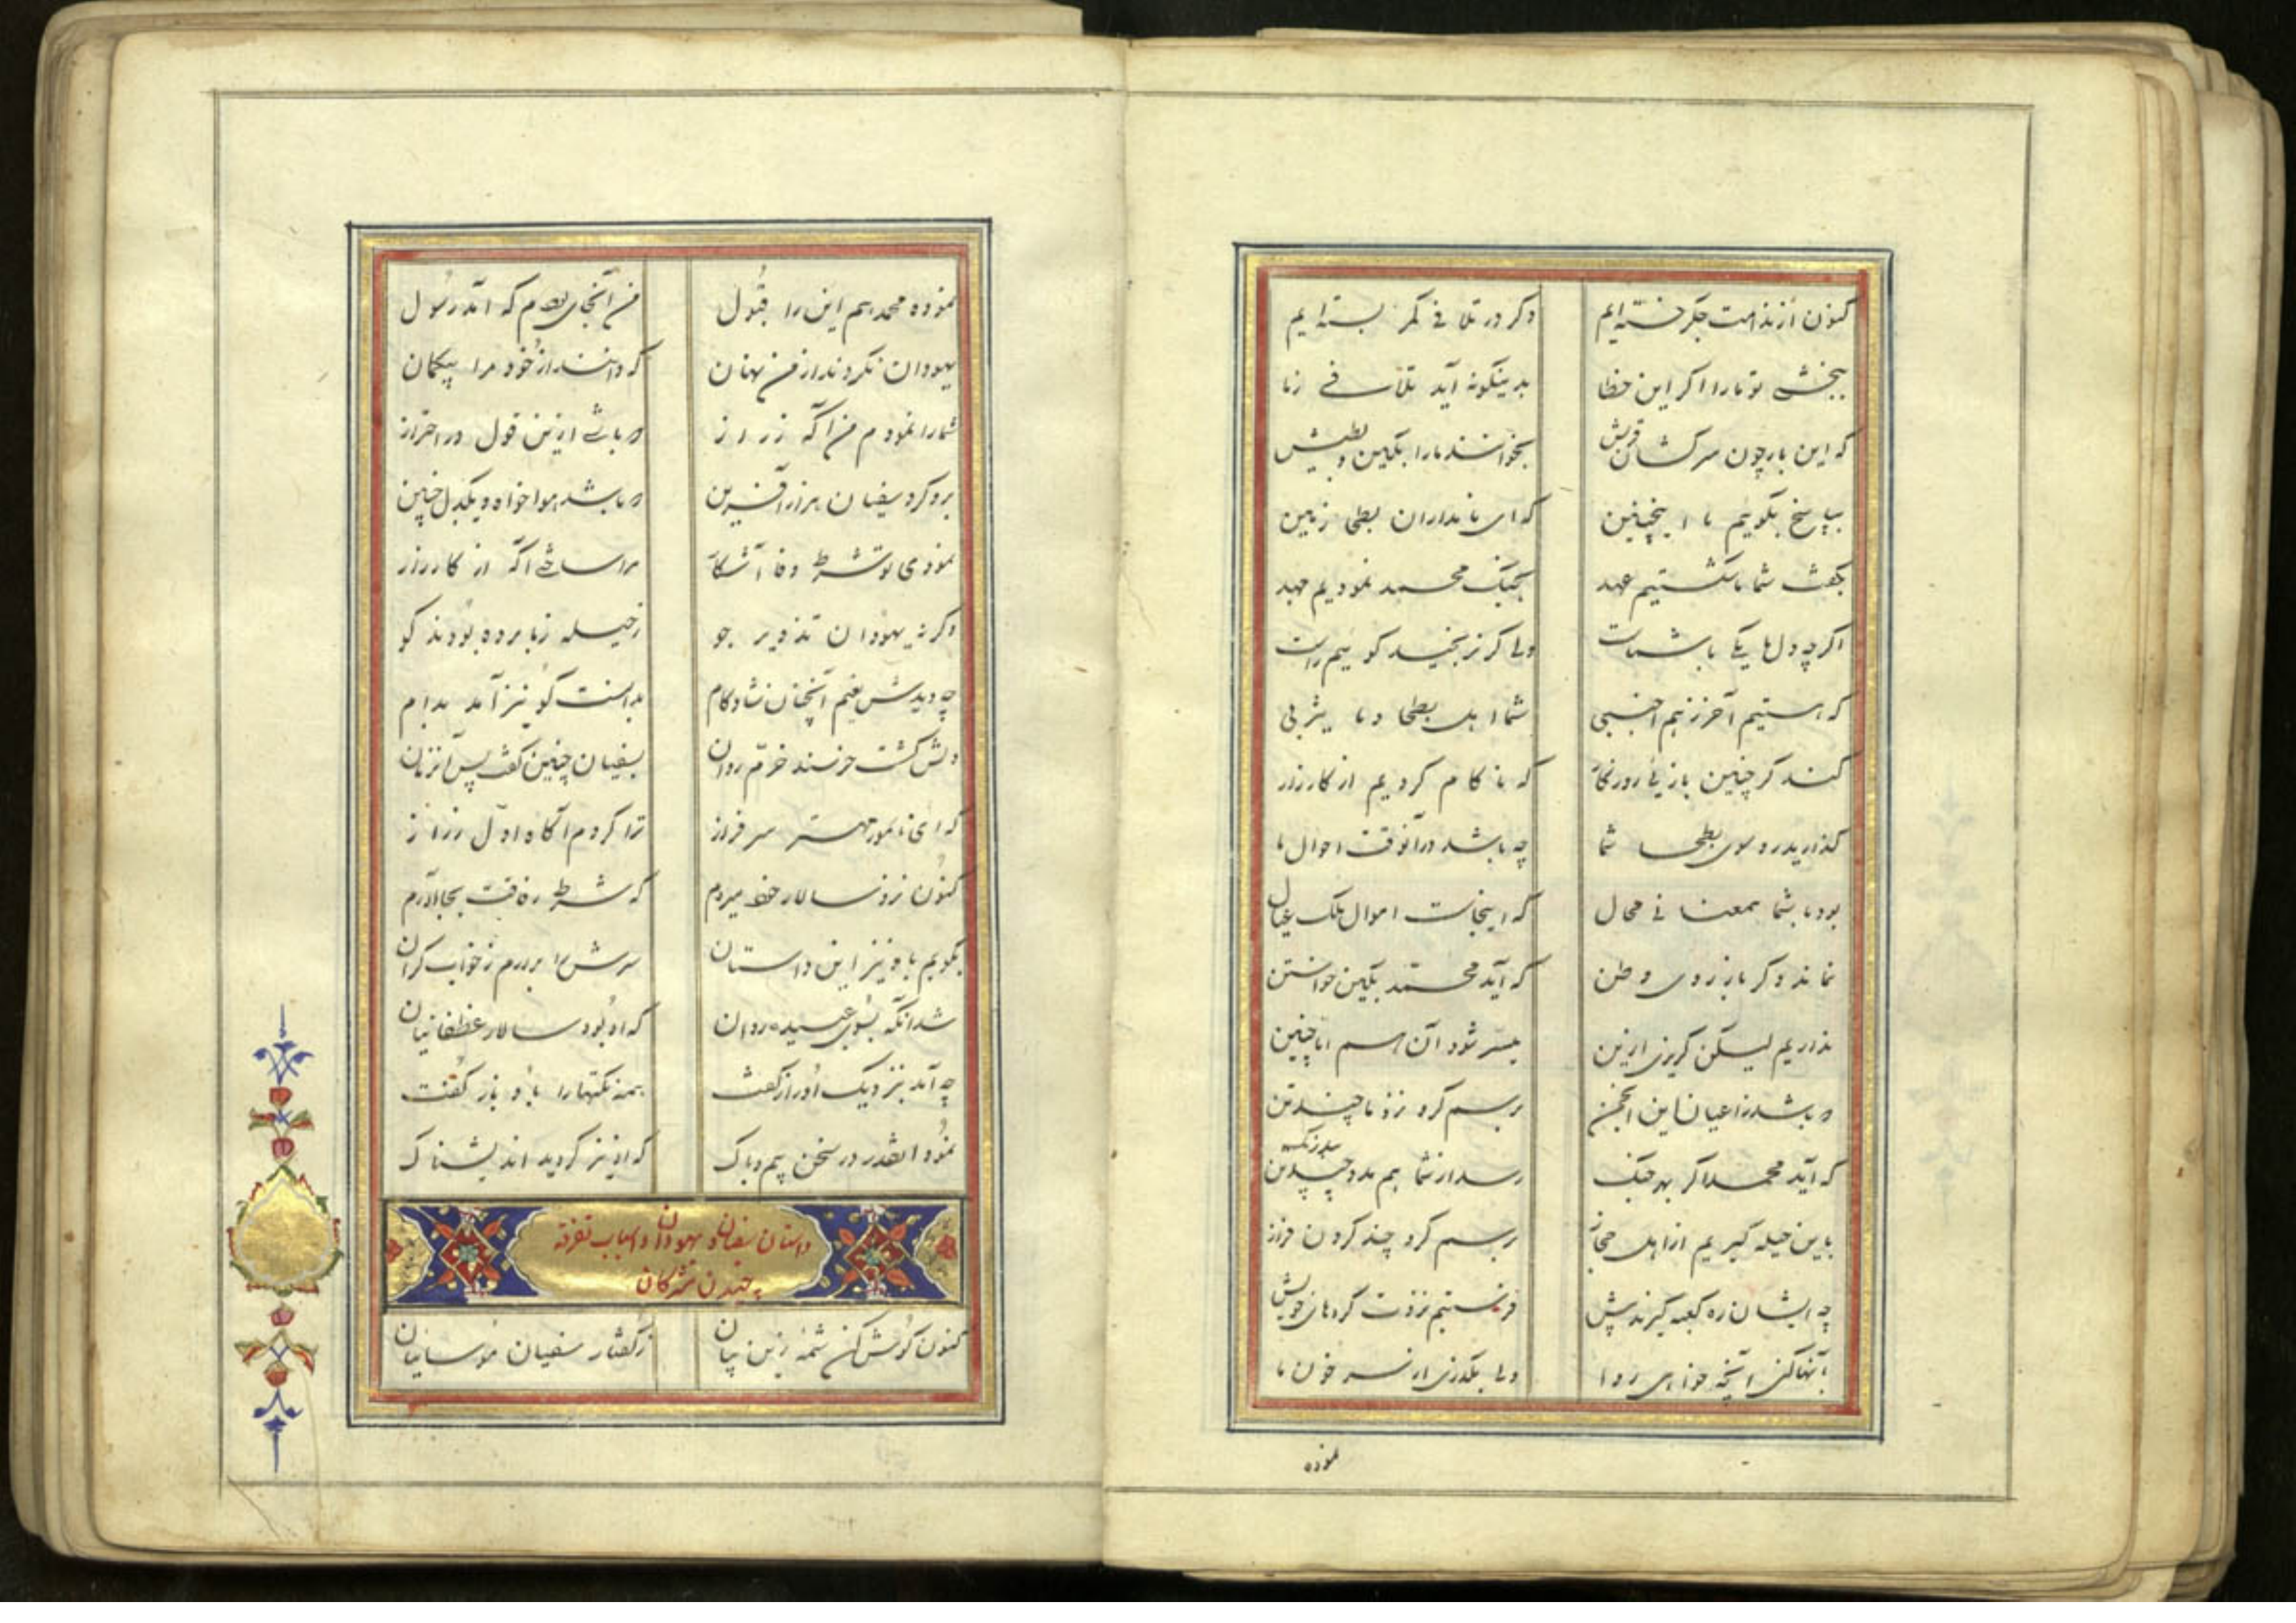 کنون از ندامت جگر خسته‌ایم	دگر در تلافی کمر بسته‌ایم
ببخشی تو ما را اگر این خطا	بدینگونه آید تلافی ز ما
که این بار چون سرکشان قریش	بخوانند ما را بکین و بطیش
بپاسخ بگوییم ما اینچنین	که ای نامداران بطحا زمین
بگفت شما ما شکستیم عهد	بجنگ محمد نمودیم جهد
اگرچه دل ما یکی با شماست	ولی گر نرنجید گوییم راست
که هستیم آخر ز هم اجنبی	شما اهل بطحا و ما یثربی
کند گر چنین بازیی روزگار	که ناکام گردیم از کارزار
گذارید رو سوی بطحا شما	چه باشد در آنوقت احوال ما
بود با شما همعنانی محال	که اینجاست اموال ملک عیال
نماند دگر باز روی وطن	که آید محمد بکین خواستن
نداریم لیکن گریزی ازین	میسر شود آن هم اما چنین
که باشد ز اعیان این انجمن	برسم گرو نزد ما چند تن
که آید محمد اگر بهر جنگ	رسد از شما هم مدد بیدرنگ
باین حیله گیریم از اهل حجاز	برسم گرو چند گردن فراز
چه ایشان ره کعبه گیرند پیش	فرستیم نزدت گروهای خویش
بآنها کن آنچه خواهی روا	ولی بگذری از سر خون ما
نموده
نموده محمد هم این را قبول	من آنجای بودم که آمد رسول
یهودان نکردند از من نهان	که دانند از خود مرا بیگمان
شما را نمودم من آگه ز راز	که باشی ازین قول در احتراز
برو کرد سفیان هزار آفرین	که باشد هواخواه و یکدل چنین
نمودی تو شرط وفا آشکار	مرا ساختی آگه از کارزار
وگرنه یهودان تذویر جو	ز حیله ز ما برده بودند گو
چه دیدش نعیم آنچنان شادکام	بدانست کو نیز آمد بدام
دلش گشت خرسند خرم روان	بسفیان چنین گفت پس آنزمان
که ای نامور مهتر سرفراز	ترا کردم آگاه اول ز راز
کنون نزد سالار خود میروم	که شرط رفاقت بجا آورم
بگویم باو نیز این داستان	سرش را برآرم ز خواب گران
شد آنگه بسوی عیینه روان	که او بود سالار غطفانیان
چه آمد بنزدیک او راز گفت	همه نکتها را باو باز گفت
نمود آنقدر در سخن بیم و باک	که او نیز گردید اندیشناک
داستان سفیان و یهودان و اسباب تفرقه
چیدن مشرکان
کنون گوش کن شمه زین بیان	ز گفتار سفیان و موسائیان